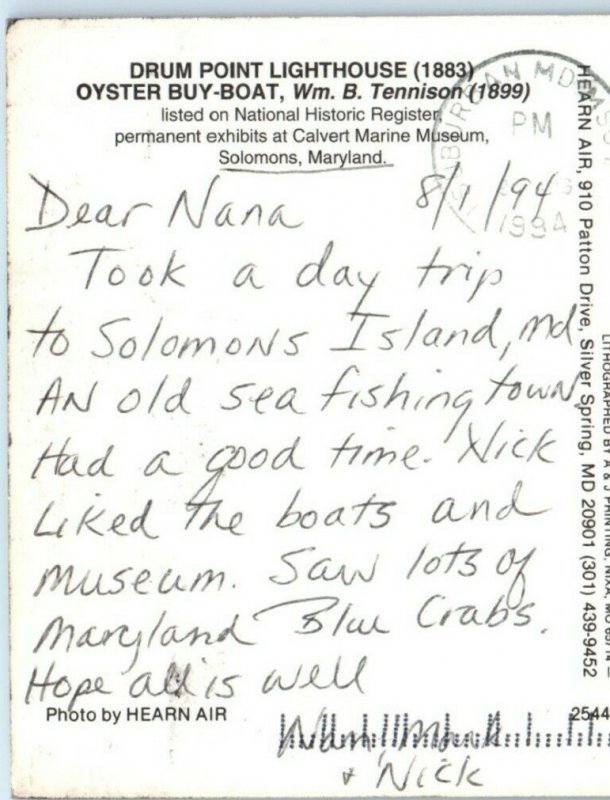 DRUM POINT LIGHTHOUSE (1883)
OYSTER BUY-BOAT, Wm. B. Tennison (1899)
listed on National Historic Register,
permanent exhibits at Calvert Marine Museum,
Solomons, Maryland.
SUBURBAN MD
PM
1994
8/1/94
Dear Nana
Took a day trip
to Solomons Island, Md
AN old sea fishing town.
Had a good time. Nick
Liked the boats and
museum. Saw lots of
Maryland Blue Crabs.
Hope all is well
Mark
+ Nick
Photo by HEARN AIR
2544
HEARN AIR, 910 Patton Drive, Silver Spring, MD 20901 (301) 439-9452
LITHOGRAPHED BY A & J PRINTING, NIXA, MO